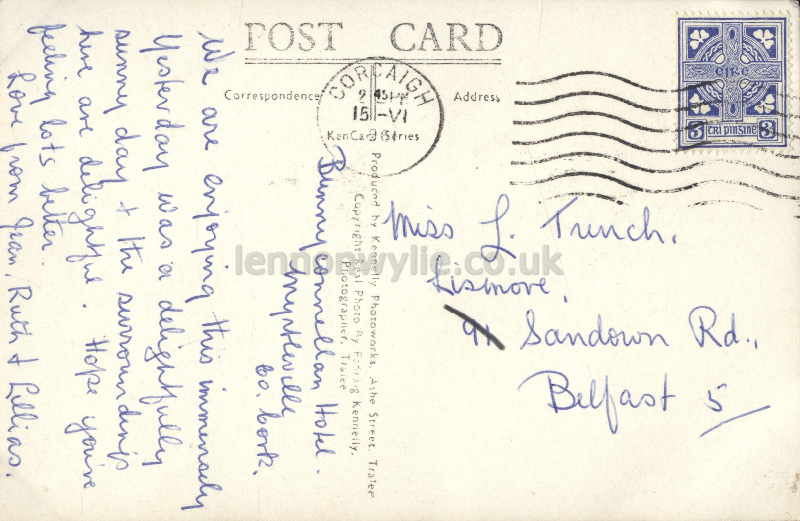 POST CARD
Correspondence
Address
KenCard Series
CORCAIGH
15 VI
EIRE
3 TRÍ PINGINE 3
Bunnyconnellan Hotel.
Myrtleville
Co. Cork.
We are enjoying this immensely
Yesterday was a delightfully
sunny day & the surroundings
here are delightful. Hope you're
feeling lots better.
Love from Jean, Ruth & Lillias.
Produced by Kennelly Photoworks, Ashe Street, Tralee
Copyright Real Photo By Padraig Kennelly.
Photographer, Tralee
Miss J. Trench.
Lismore,
91 Sandown Rd.,
Belfast 5
lennonwylie.co.uk